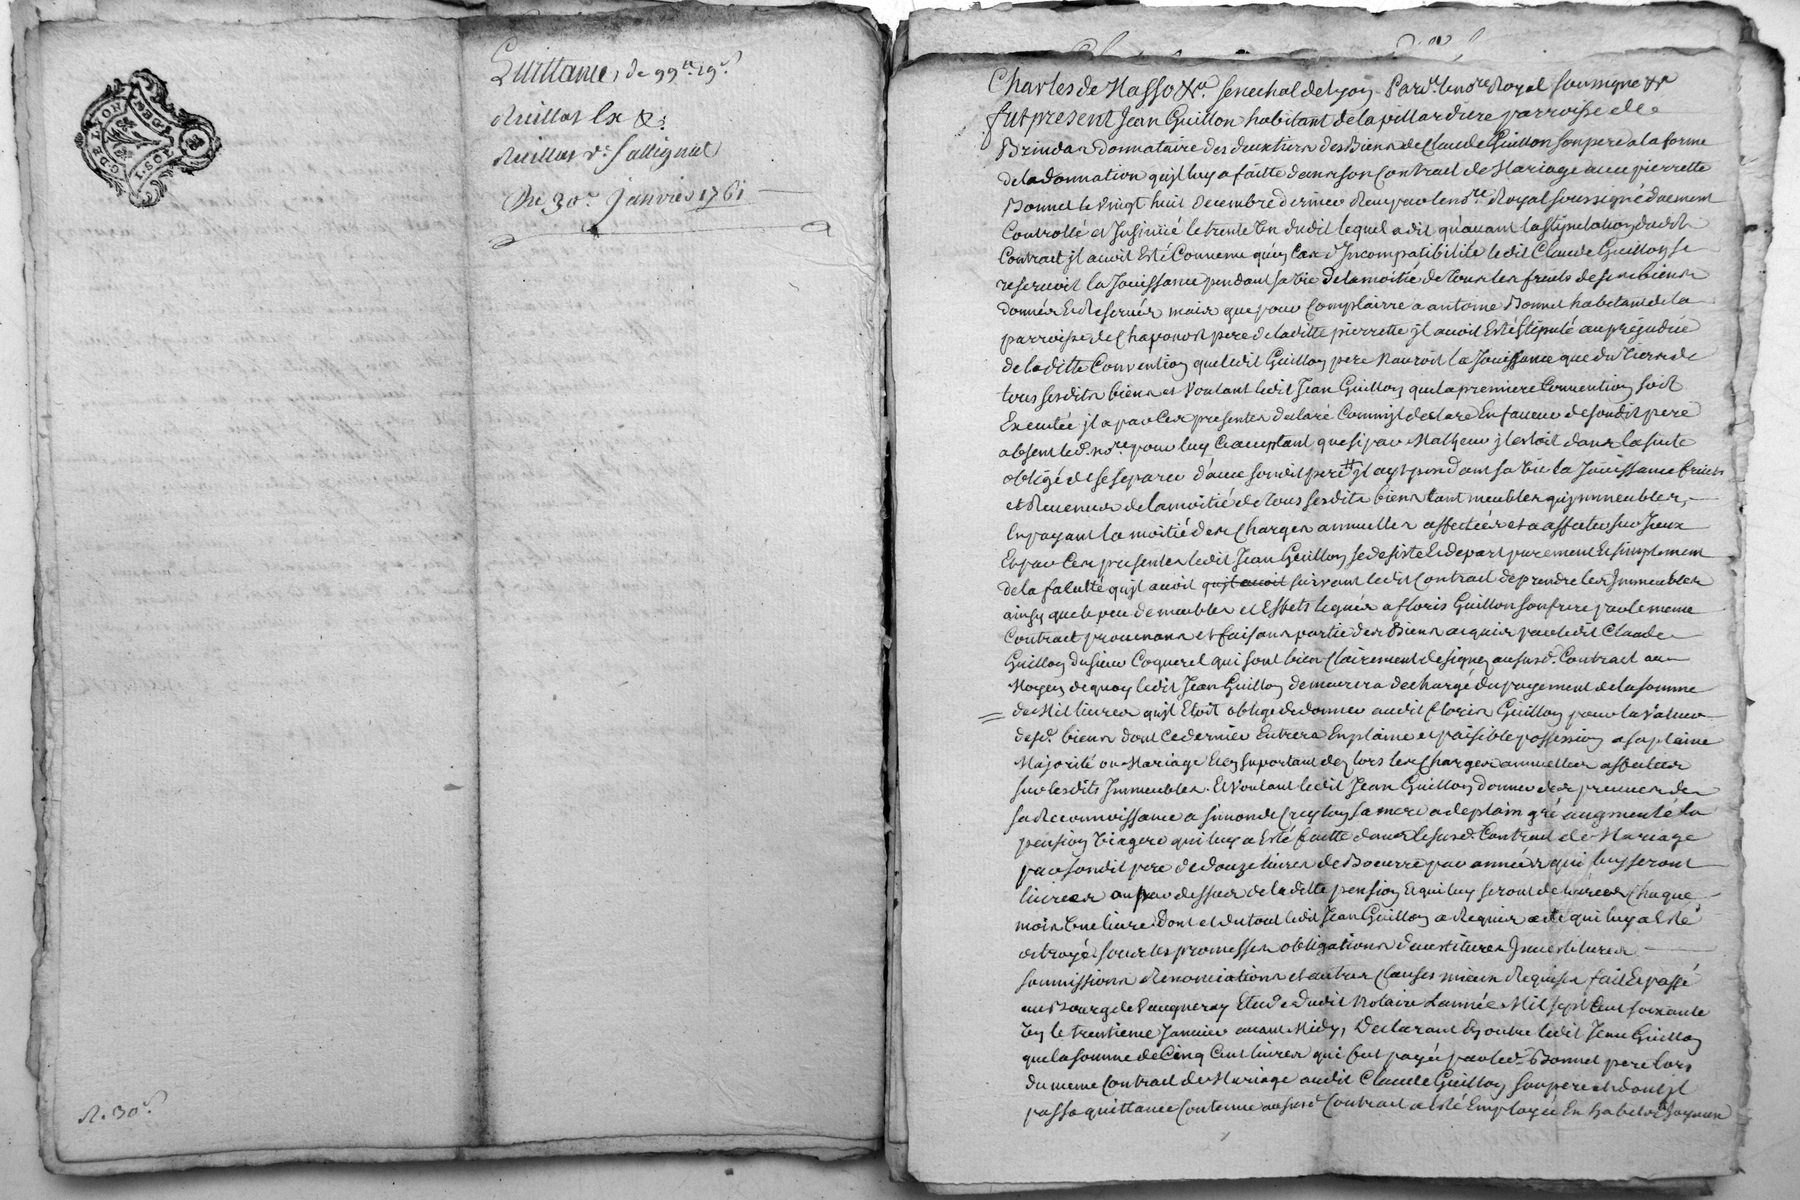 GDE LYON
REGI
1·SOL
Quittance, de 99ᵗᵗ 19ˢ.
Du 30ᵉ Janvier 1761
R. 30ˢ.
Charles de Masso &ᵃ senechal de Lyon Pardᵗ le noʳᵉ Royal soussigné &ᵃ
fut present Jean Guillon habitant de la pillardiere parroisse de
Brindas donnataire des deux tiers des Biens de Claude Guillon son pere a la forme
de la donnation qu'jl luy a faitte dans son Contract de Mariage avec pierrette
Bonnet le vingt huit decembre dernier Reçu par le noʳᵉ Royal soussigné duement
Controllé et Insinüé le trente Un dudit lequel a dit qu'avant la stipulation dudit
Contract jl avoit Esté Convenu qu'en Cas d'Incompatibilité ledit Claude Guillon se
reservoit la Jouissance pendant sa vie de la moitié de tous les fruits de ses biens
donnés & Reservés mais que pour Complairre a antoine Bonnet habitant de la
parroisse de Chaponost pere de laditte pierrette jl avoit Esté stipulé au prejudice
de laditte Convention que ledit Guillon pere n'auroit la Jouissance que du tiers de
tous sesdits biens et voulant ledit Jean Guillon que la premiere Convention soit
Executée jl a par Ces presentes declaré Comm'jl declare En faveur de sondit pere
absent led. noʳᵉ pour luy Cacceptant que si par Malheur jl estoit dans la suite
obligé de se separer d'avec sondit pere # jl ayt pendant sa vie la Jouissance fruits
et Revenus de la moitié de tous sesdits biens tant meubles qu'jmmeubles,
En payant la moitié des Charges annuelles affectées et a affecter sur Jceux
Et par Ces presentes ledit Jean Guillon se desiste & depart purement & simplement
de la faculté qu'jl avoit qu'jl avoit suivant ledit Contract de prendre les Immeubles
ainsy que le peu de meubles et Effets legués a floris Guillon son frere par le meme
Contract provenans et faisans partie des Biens acquis par ledit Claude
Guillon du sieur Coquerel qui sont bien Clairement designez au susd. Contract au
Moyen de quoy ledit Jean Guillon demeurera dechargé du payement de la somme
de Mil livres qu'jl Etoit obligé de donner audit floris Guillon pour la valeur
desd. biens dont Ce dernier Entrera En plaine et paisible possession a sa plaine
Majorité ou Mariage & en suportant dez lors les Charges annuelles affectées
sur lesdits Immeubles. Et voulant ledit Jean Guillon donner des preuves de
sa Reconnoissance a simonde sa mere a de plain gré augmenté la
pension viagere qui luy a Esté faitte dans le susd. Contract de Mariage
par sondit pere de douze livres de Boeurre par année qui luy seront
livrées au par dessus de laditte pension & qui luy seront delivrées Chaque
mois Une livre. Dont et du tout ledit Jean Guillon a Requis acte qui luy a Esté
octroyé sous les promesses obligations
soumissions Renonciations et autres Clauses mieux Requises fait & passé
au Bourg de Vaugneray Etude dudit Notaire L'année Mil sept Cent soixante
Un le trentieme Janvier avant Midy, Declarant En outre ledit Jean Guillon
que la somme de Cinq Cent livres qui fut payée par led. Bonnet pere lors
du meme Contract de Mariage audit Claude Guillon son pere et dont jl
passa quittance Contenue au susd. Contract a Esté Employée En